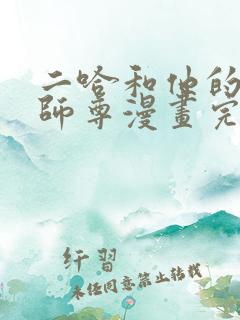 二哈和他的
師尊漫畫完
纤習
未任同意禁止转载